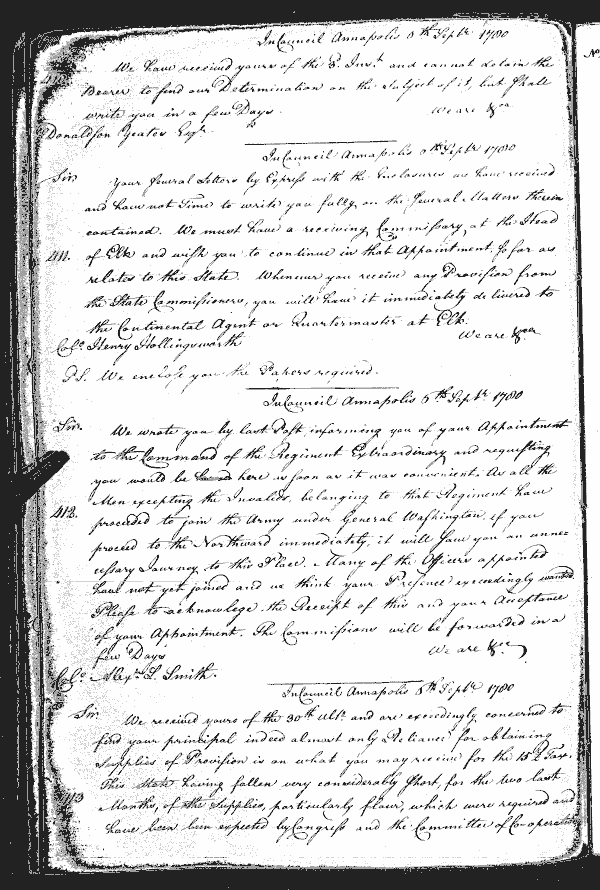 In Council Annapolis 6th Septr 1780
We have received yours of the 3. Inst and cannot detain the
Bearer to find our Determination on the Subject of it, but shall
write you in a few Days.
We are &ca
Donaldson Yeates Esqr
In Council Annapolis 6th Septr 1780
Sir.
Your several Letters by Express with the Enclosures we have received
and have not Time to write you fully, on the several Matters therein
contained. We must have a receiving Commissary, at the Head
411. of Elk and wish you to continue in that Appointment, so far as
relates to this State. Whenever you receive any Provision from
the State Commissioners, you will have it immediately delivered to
the Continental Agent or Quartermaster at Elk.
We are &ca
Colo Henry Hollingsworth
PS. We enclose you the Papers required.
In Council Annapolis 6th Septr 1780
Sir.
We wrote you by last Post, informing you of your Appointment
to the Command of the Regiment Extraordinary and requesting
you would be here as soon as it was convenient. As all the
Men excepting the Invalids, belonging to that Regiment have
412. proceeded to join the Army under General Washington, if you
proceed to the Northward immediately, it will save you an unne-
cessary Journey, to this Place. Many of the Officers appointed
have not yet joined and we think your Presence exceedingly wanted.
Please to acknowlege the Receipt of this and your Acceptance
of your Appointment. The Commissions will be forwarded in a
few Days
We are &ca
Colo Alexr L. Smith.
In Council Annapolis 6th Septr 1780
Sir.
We received yours of the 30th Ulto and are exceedingly concerned to
find your principal indeed almost only Reliance for obtaining
Supplies of Provision is on what you may receive for the 15 £ Tax.
This State having fallen very considerably short, for the two last
413 Months, of the Supplies, particularly flour, which were required and
have been been expected by Congress and the Committee of Co-operation